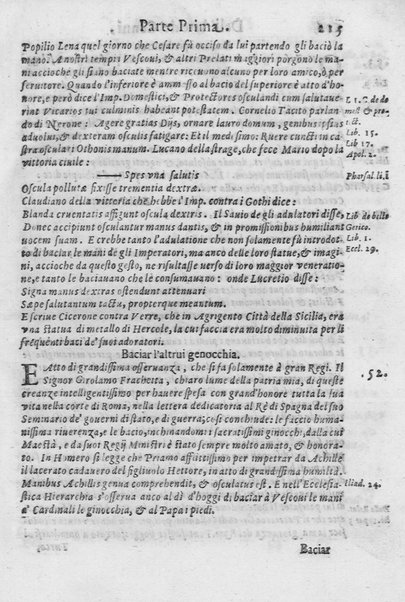 Parte Prima. 215
Popilio Lena quel giorno che Cesare fù occiso da lui partendo gli baciò la
mano. A nostri tempi Vescoui, & altri Prelati maggiori porgono le ma
ni accioche gli siano baciate mentre riceuono alcuno per loro amico, ò per
seruitore. Quando l'inferiore è ammesso al bacio del superiore è atto d'ho
nore, e però dice l'Imp. Domestici, & Protectores osculandi cum salutaue
rint Vicarios tui culminis habeant potestatem. Cornelio Tacito parlando
di Nerone: Agere gratias Dijs, ornare lauro domum, genibus ipsius
aduolui, & dexteram osculis fatigare: Et il medesimo: Ruere cuncti in ca
stra osculari Othonis manum. Lucano della strage, che fece Mario dopo la
vittoria ciuile:
—— Spes vna salutis
Oscula pollutæ fixisse trementia dextræ.
Claudiano della vittoria che hebbe l'Imp. contra i Gothi dice:
Blanda cruentatis affigunt oscula dextris. Il Sauio de gli adulatori disse,
Donec accipiunt osculantur manus dantis, & in promissionibus humiliant
uocem suam. E crebbe tanto l'adulatione che non solamente fù introdot
to di baciar le mani de gli Imperatori, ma anco delle loro statue, & imagi
ni, accioche da questo gesto, ne risultasse uerso di loro maggior veneratio
ne, e tanto le baciauano che le consumauano: onde Lucretio disse:
Signa manus dextras ostendunt attenuari
Sæpe salutantum tactu, propterque meantum.
Escriue Cicerone contra Verre, che in Agrigento Città della Sicilia, era
vna statua di metallo di Hercole, la cui faccia era molto diminuita per li
frequenti baci de' suoi adoratori.
Baciar l'altrui genocchia.
E Atto di grandissima osseruanza, che si fa solamente à gran Regi. Il
Signor Girolamo Frachetta, chiaro lume della patria mia, di queste
creanze intelligentissimo per hauere spesa con grand'honore tutta la sua
vita nella corte di Roma, nella lettera dedicatoria al Rè di Spagna del suo
Seminario de' gouerni di stato, e di guerra; così conchiude: le faccio humi
lissima riuerenza, e le bacio, inchinandomi i sacratissimi ginocchi, dalla cui
Maestà, e da suoi Regij Ministri è stato sempre molto amato, & honora-
to. In Homero si legge che Priamo afflittissimo per impetrar da Achille
il lacerato cadauero del figliuolo Hettore, in atto di grandissima humiltà.
Manibus Achillis genua comprehendit, & osculatus est. E nell'Ecclesia-
stica Hierarchia s'osserua anco al dì d'hoggi di baciar à Vescoui le mani
a' Cardinali le ginocchia, & al Papa i piedi.
Baciar
l. 1. C. de do
mest. & pro
tect.
Lib. 15.
Lib 17.
Apol. 2.
Pharsal. li. 2
Lib de bello
Getico.
Lib. 1.
Eccl. 29.
52.
Iliad. 24.